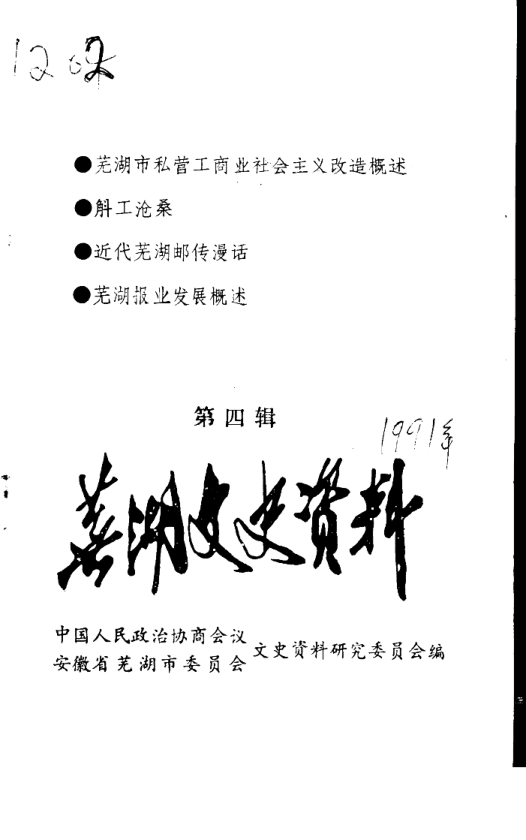 ●芜湖市私营工商业社会主义改造概述
●斛工沧桑
●近代芜湖邮传漫话
●芜湖报业发展概述
第四辑
1991年
芜湖文史资料
中国人民政治协商会议
安徽省芜湖市委员会
文史资料研究委员会编